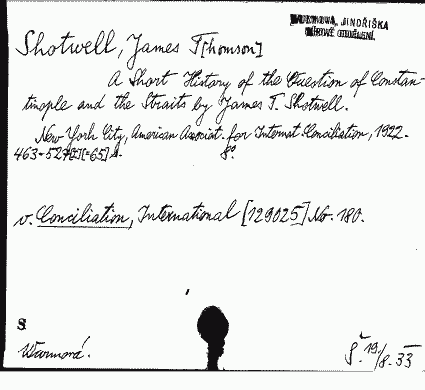 JINDŘIŠKA
Shotwell, James T[homson]
A Short History of the Question of Constan-
tinople and the Straits by James T. Shotwell.
New York City, American Associat. for Internat. Conciliation, 1922.
463-527 [=65] s. 8°.
v. Conciliation, International [129025] No. 180.
S
Warmová.
Š. 19/8. 33